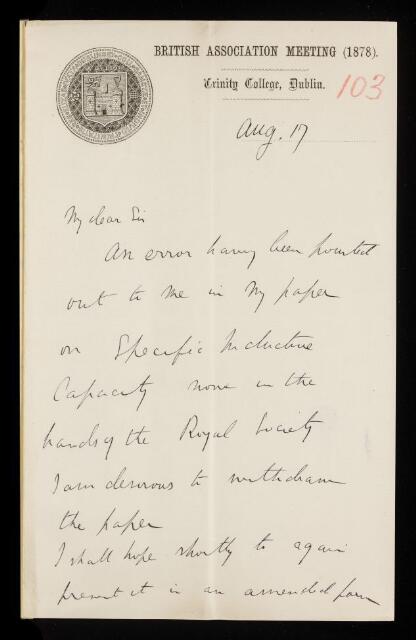 BRITISH ASSOCIATION MEETING (1878).
Trinity College, Dublin.
103
Aug. 17
My dear Sir
An error having been pointed
out to me in my paper
on Specific Inductive
Capacity now in the
hands of the Royal Society
I am desirous to withdraw
the paper
I shall hope shortly to again
present it in an amended form